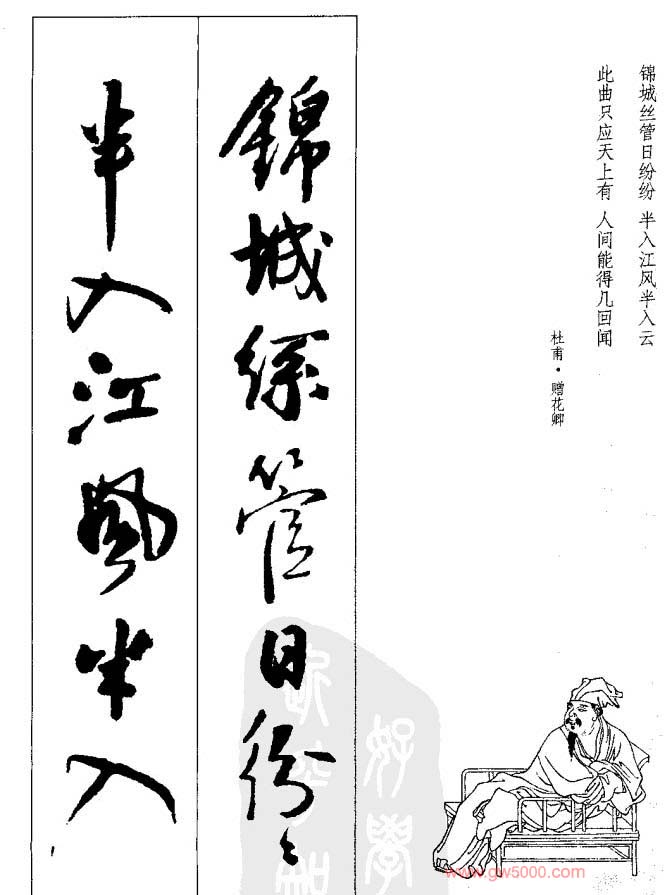 锦城丝管日纷纷 半入江风半入云
此曲只应天上有 人间能得几回闻
杜甫·赠花卿
錦城絲管日紛〻
半入江風半入
好學
www.gw5000.com